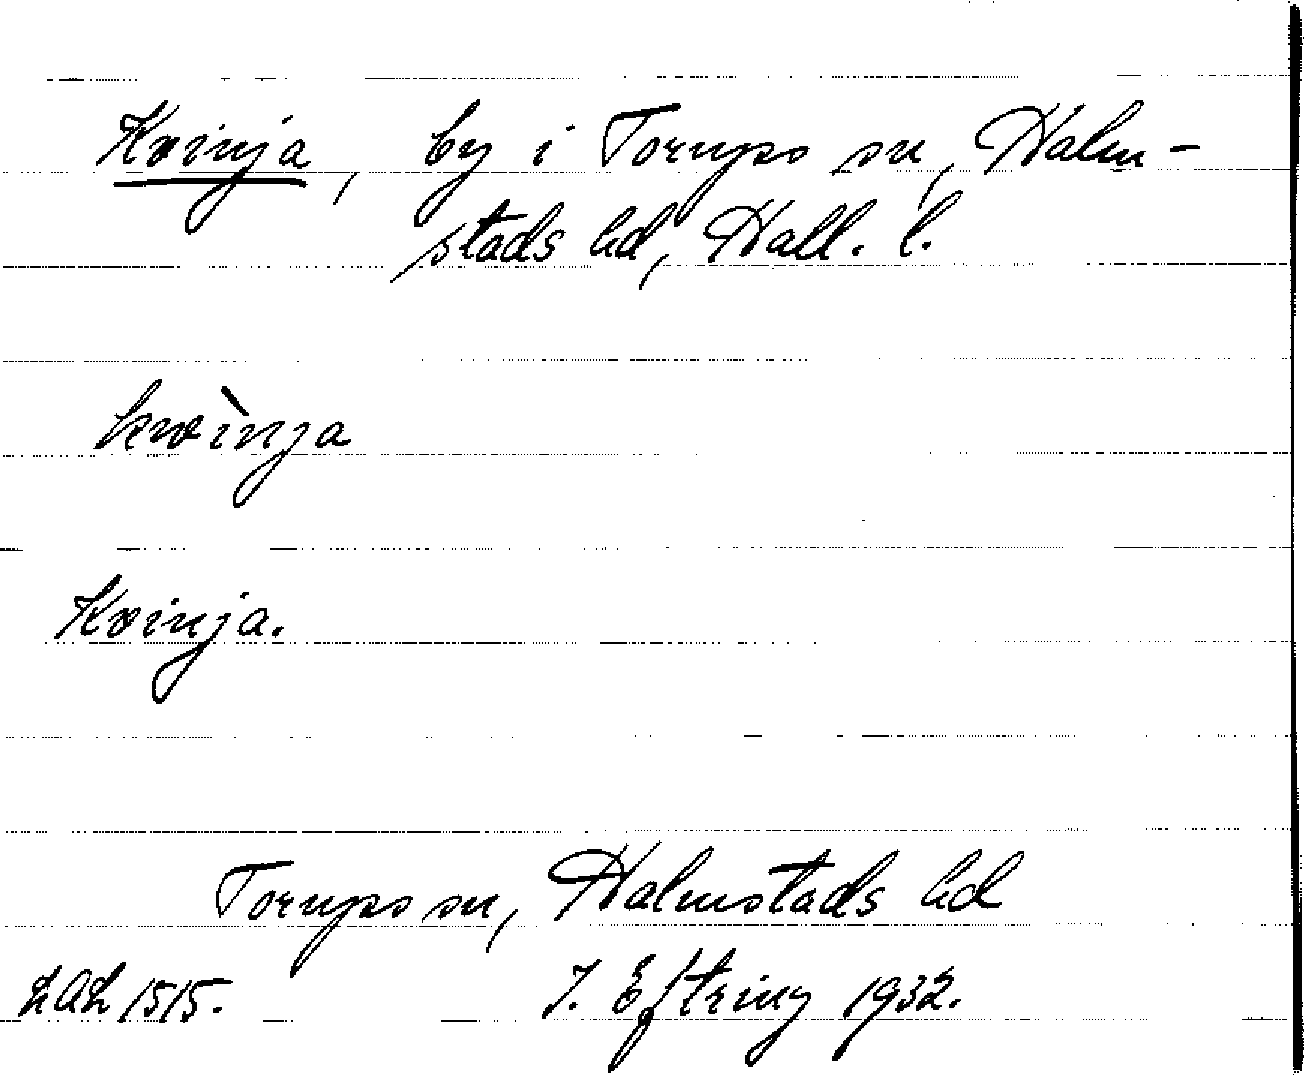 Kvinja, by i Torups sn, Halm-
stads hd, Hall. l.
kwìnja
Kvinja.
Torups sn, Halmstads hd
LAL 1515. J. Eftring 1932.